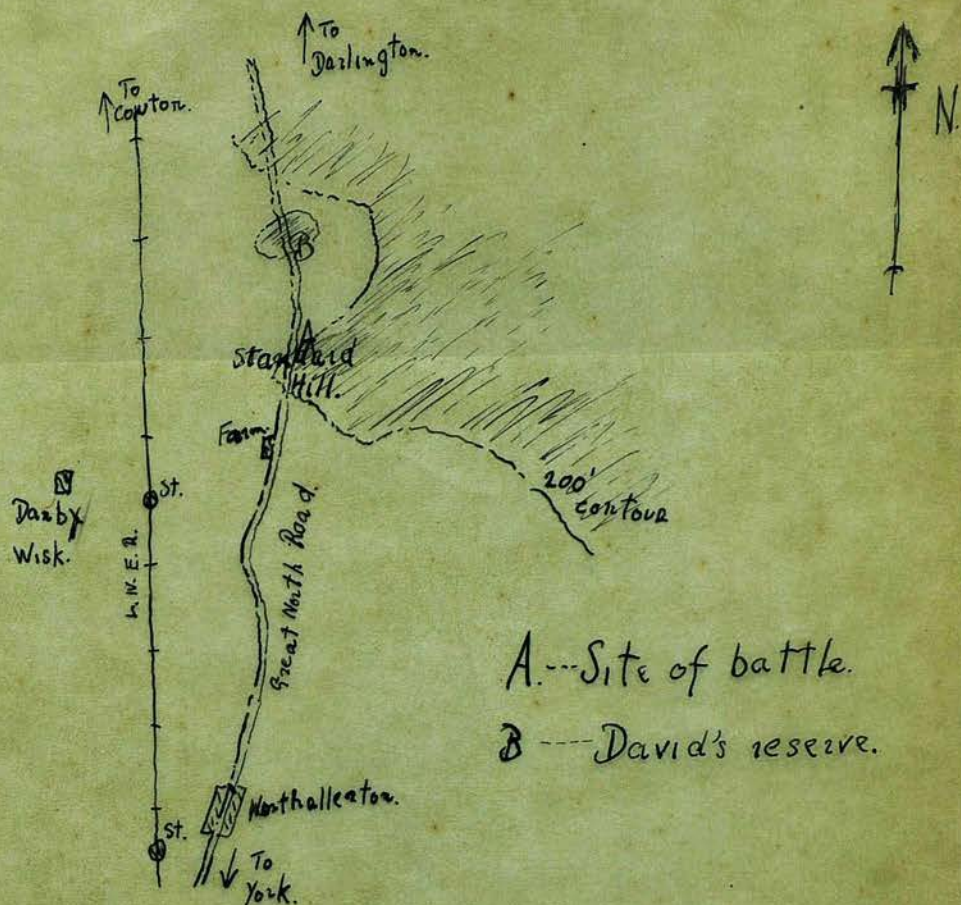 To
Darlington.
To
Cowton.
N.
B
A
Standard
Hill.
Farm.
200'
contour
St.
Danby
Wisk.
L.N.E.R.
Great North Road.
A. --- Site of battle.
B ---- David's reserve.
Northallerton.
St.
To
York.